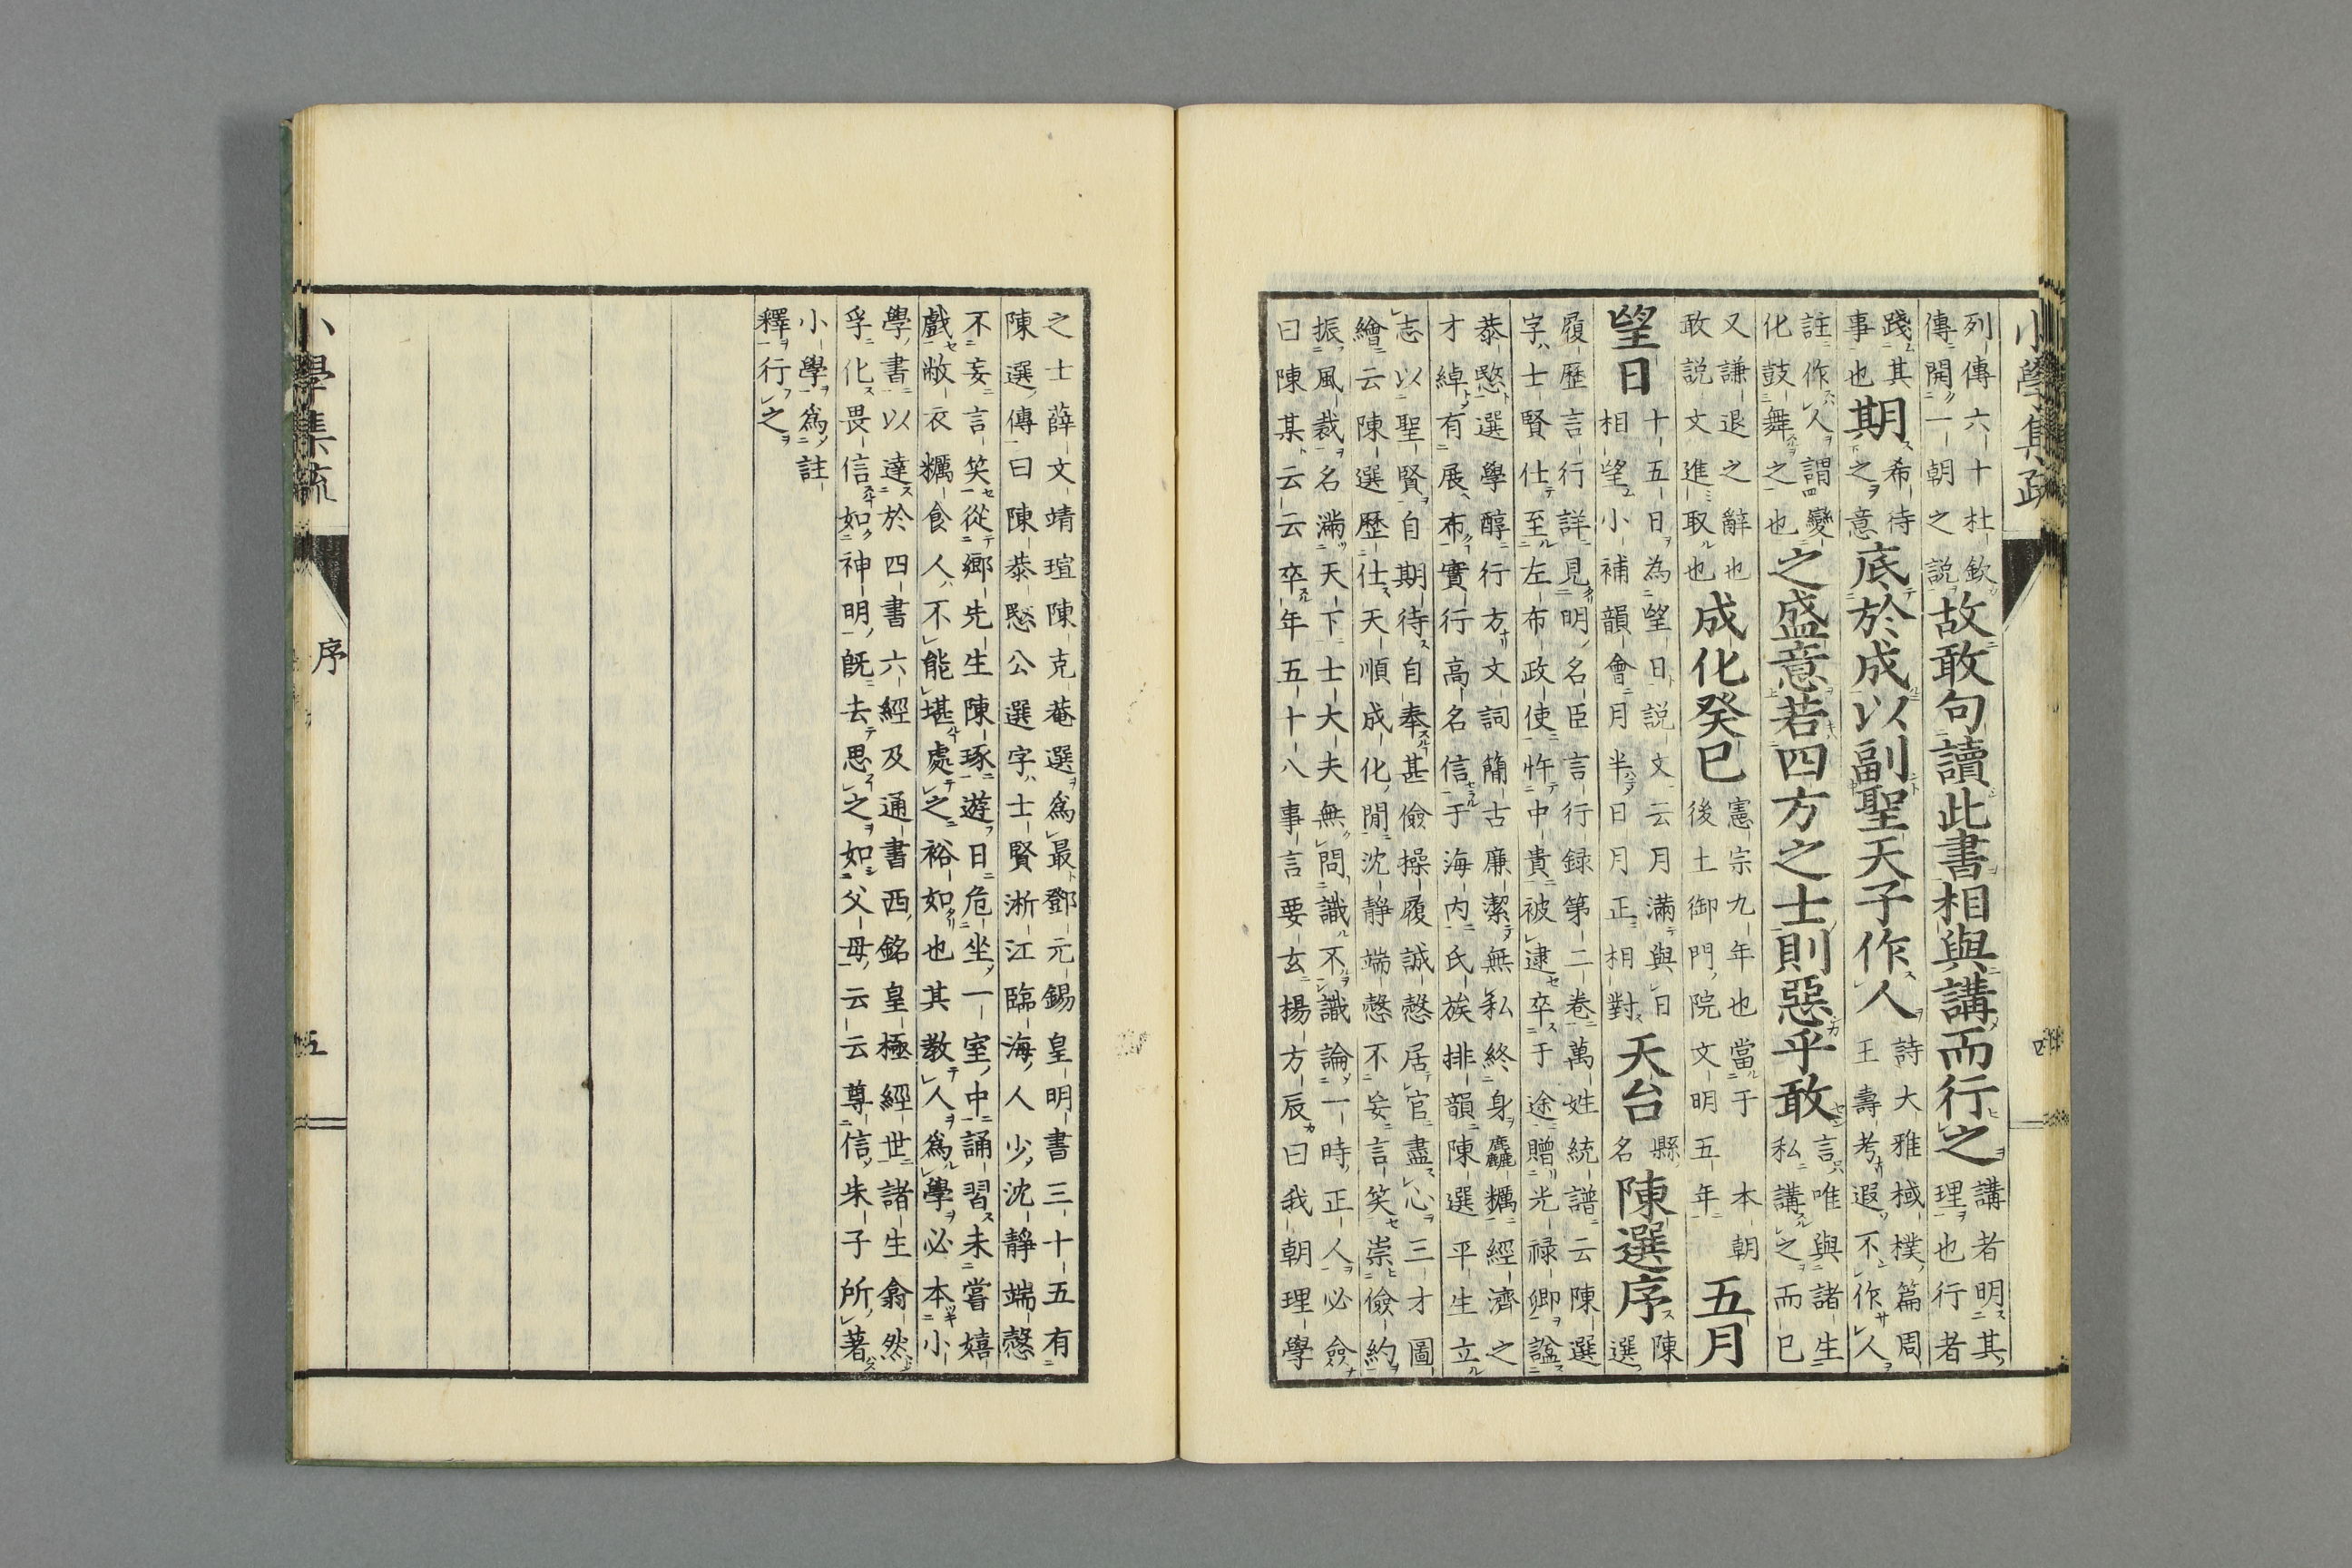 小學集疏
四
列傳六十杜欽
傳開一朝之説
故敢句讀此書相與講而行之
講者明其
理也行者
踐其
事也
期
希待
之意
底於成以副聖天子作人
詩大雅棫樸篇周
王壽考遐不作人
註作人謂變
化鼓舞之也
之盛意若四方之士則惡乎敢
言唯與諸生
私講之而已
又謙退之辭也
敢説文進取也
成化癸巳
憲宗九年也當于本朝
後土御門院文明五年
五月
望日
十五日為望日説文云月滿與日
相望小補韻會月半日月正相對
天台
縣
名
陳選序
陳
選
履歷言行詳見明名臣言行録第二卷萬姓統譜云陳選
字士賢仕至左布政使忤中貴被逮卒于途贈光禄卿諡
恭愍選學醇行方文詞簡古廉潔無私終身麤糲經濟之
才綽有展布實行高名信于海内氏族排韻陳選平生立
志以聖賢自期待自奉甚儉操履誠愨居官盡心三才圖
繪云陳選歷仕天順成化間沈靜端愨不妄言笑崇儉約
振風裁名滿天下士大夫無問識不識論一時正人必僉
曰陳某云云卒年五十八事言要玄揚方辰曰我朝理學
之士薛文靖瑄陳克菴選爲最鄧元錫皇明書三十五有
陳選傳曰陳恭愍公選字士賢淅江臨海人少沈靜端愨
不妄言笑從鄉先生陳琢遊日危坐一室中誦習未嘗嬉
戲敝衣糲食人不能堪處之裕如也其教人爲學必本小
學書以達於四書六經及通書西銘皇極經世諸生翕然
孚化畏信如神明既去思之如父母云云尊信朱子所著
小學爲註
釋行之
小學集疏
序
五